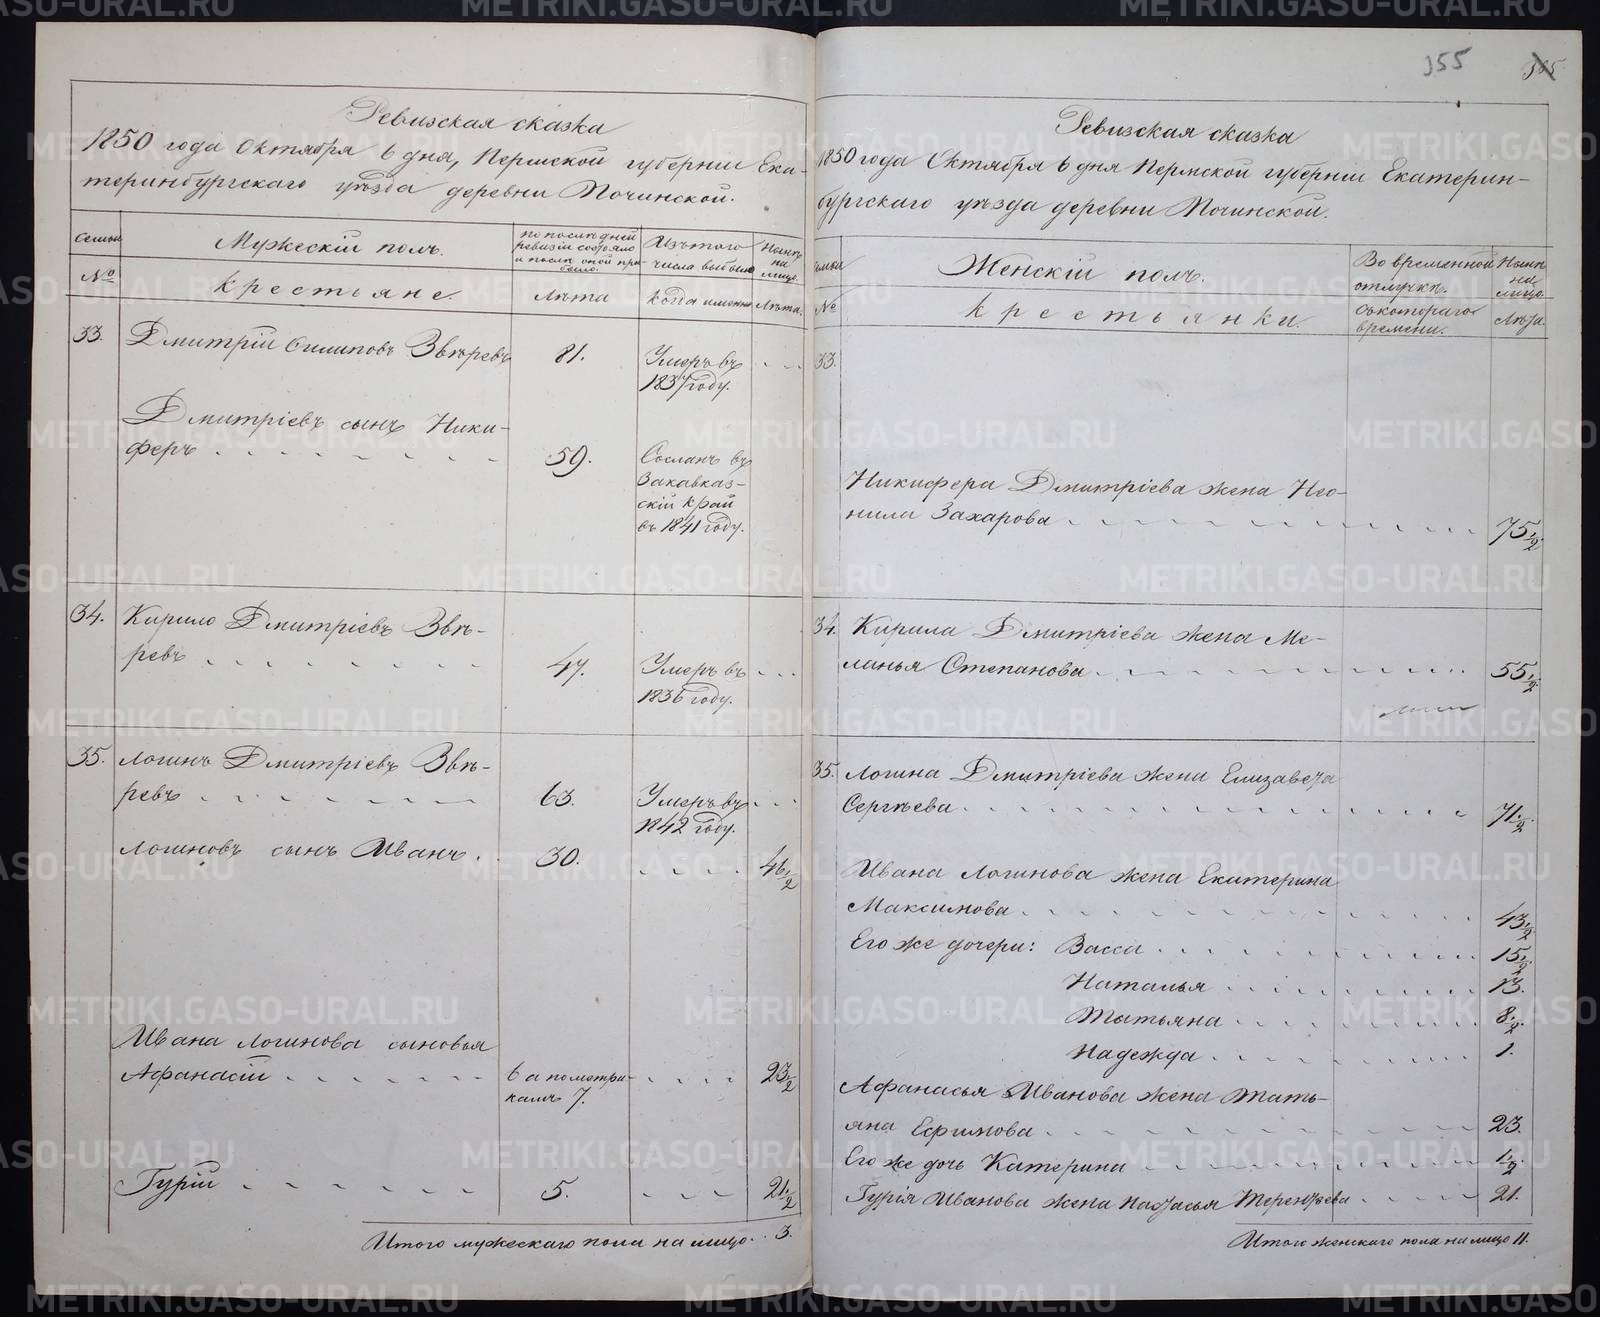 355
Ревизская сказка
1850 года Октября 6 дня, Пермской губерніи Ека-
теринбургскаго уѣзда деревни Починской.
Семьи
Мужескій полъ.
по послѣдней ревизіи состояло и послѣ оной при-было.
Изъ того числа выбыло
Нынѣ на лицо.
№
Крестьяне.
Лѣта
когда именно
Лѣта.
33.
Дмитрій Филиповъ Звѣревъ
81.
Умеръ въ
1837 году.
Дмитріевъ сынъ Ники-
феръ
59.
Сосланъ въ
Закавказ-
скій край
въ 1841 году.
34.
Кирило Дмитріевъ Звѣ-
ревъ
47.
Умеръ въ
1836 году.
35.
Логинъ Дмитріевъ Звѣ-
ревъ
63.
Умеръ въ
1842 году.
Логиновъ сынъ Иванъ.
30.
46 1/2
Ивана Логинова сыновья
Афанасій
6 а по метри-
камъ 7.
23 1/2
Гурій
5.
21 1/2
Итого мужескаго пола на лицо. . 3.
Ревизская сказка
1850 года Октября 6 дня Пермской губерніи Екатерин-
бургскаго уѣзда деревни Починской.
Семьи
Женскій полъ.
Во временной отлучкѣ.
Нынѣ на лицо.
№
Крестьянки.
Съ котораго времени.
Лѣта.
33.
Никифера Дмитріева жена Нео-
нила Захарова
75 1/2
34.
Кирила Дмитріева жена Ме-
ланья Степанова
55 1/2
35.
Логина Дмитріева жена Елизавета
Сергѣева
71 1/2
Ивана Логинова жена Екатерина
Максимова
43 1/2
Его же дочери: Васса
15 1/2
Наталья
13.
Татьяна
8 1/2
Надежда
1.
Афанасья Иванова жена Тать-
яна Ефимова
23.
Его же дочь Катерина
1/2
Гурія Иванова жена Настасья Терентьева
21.
Итого женскаго пола на лицо 11.
METRIKI.GASO-URAL.RU